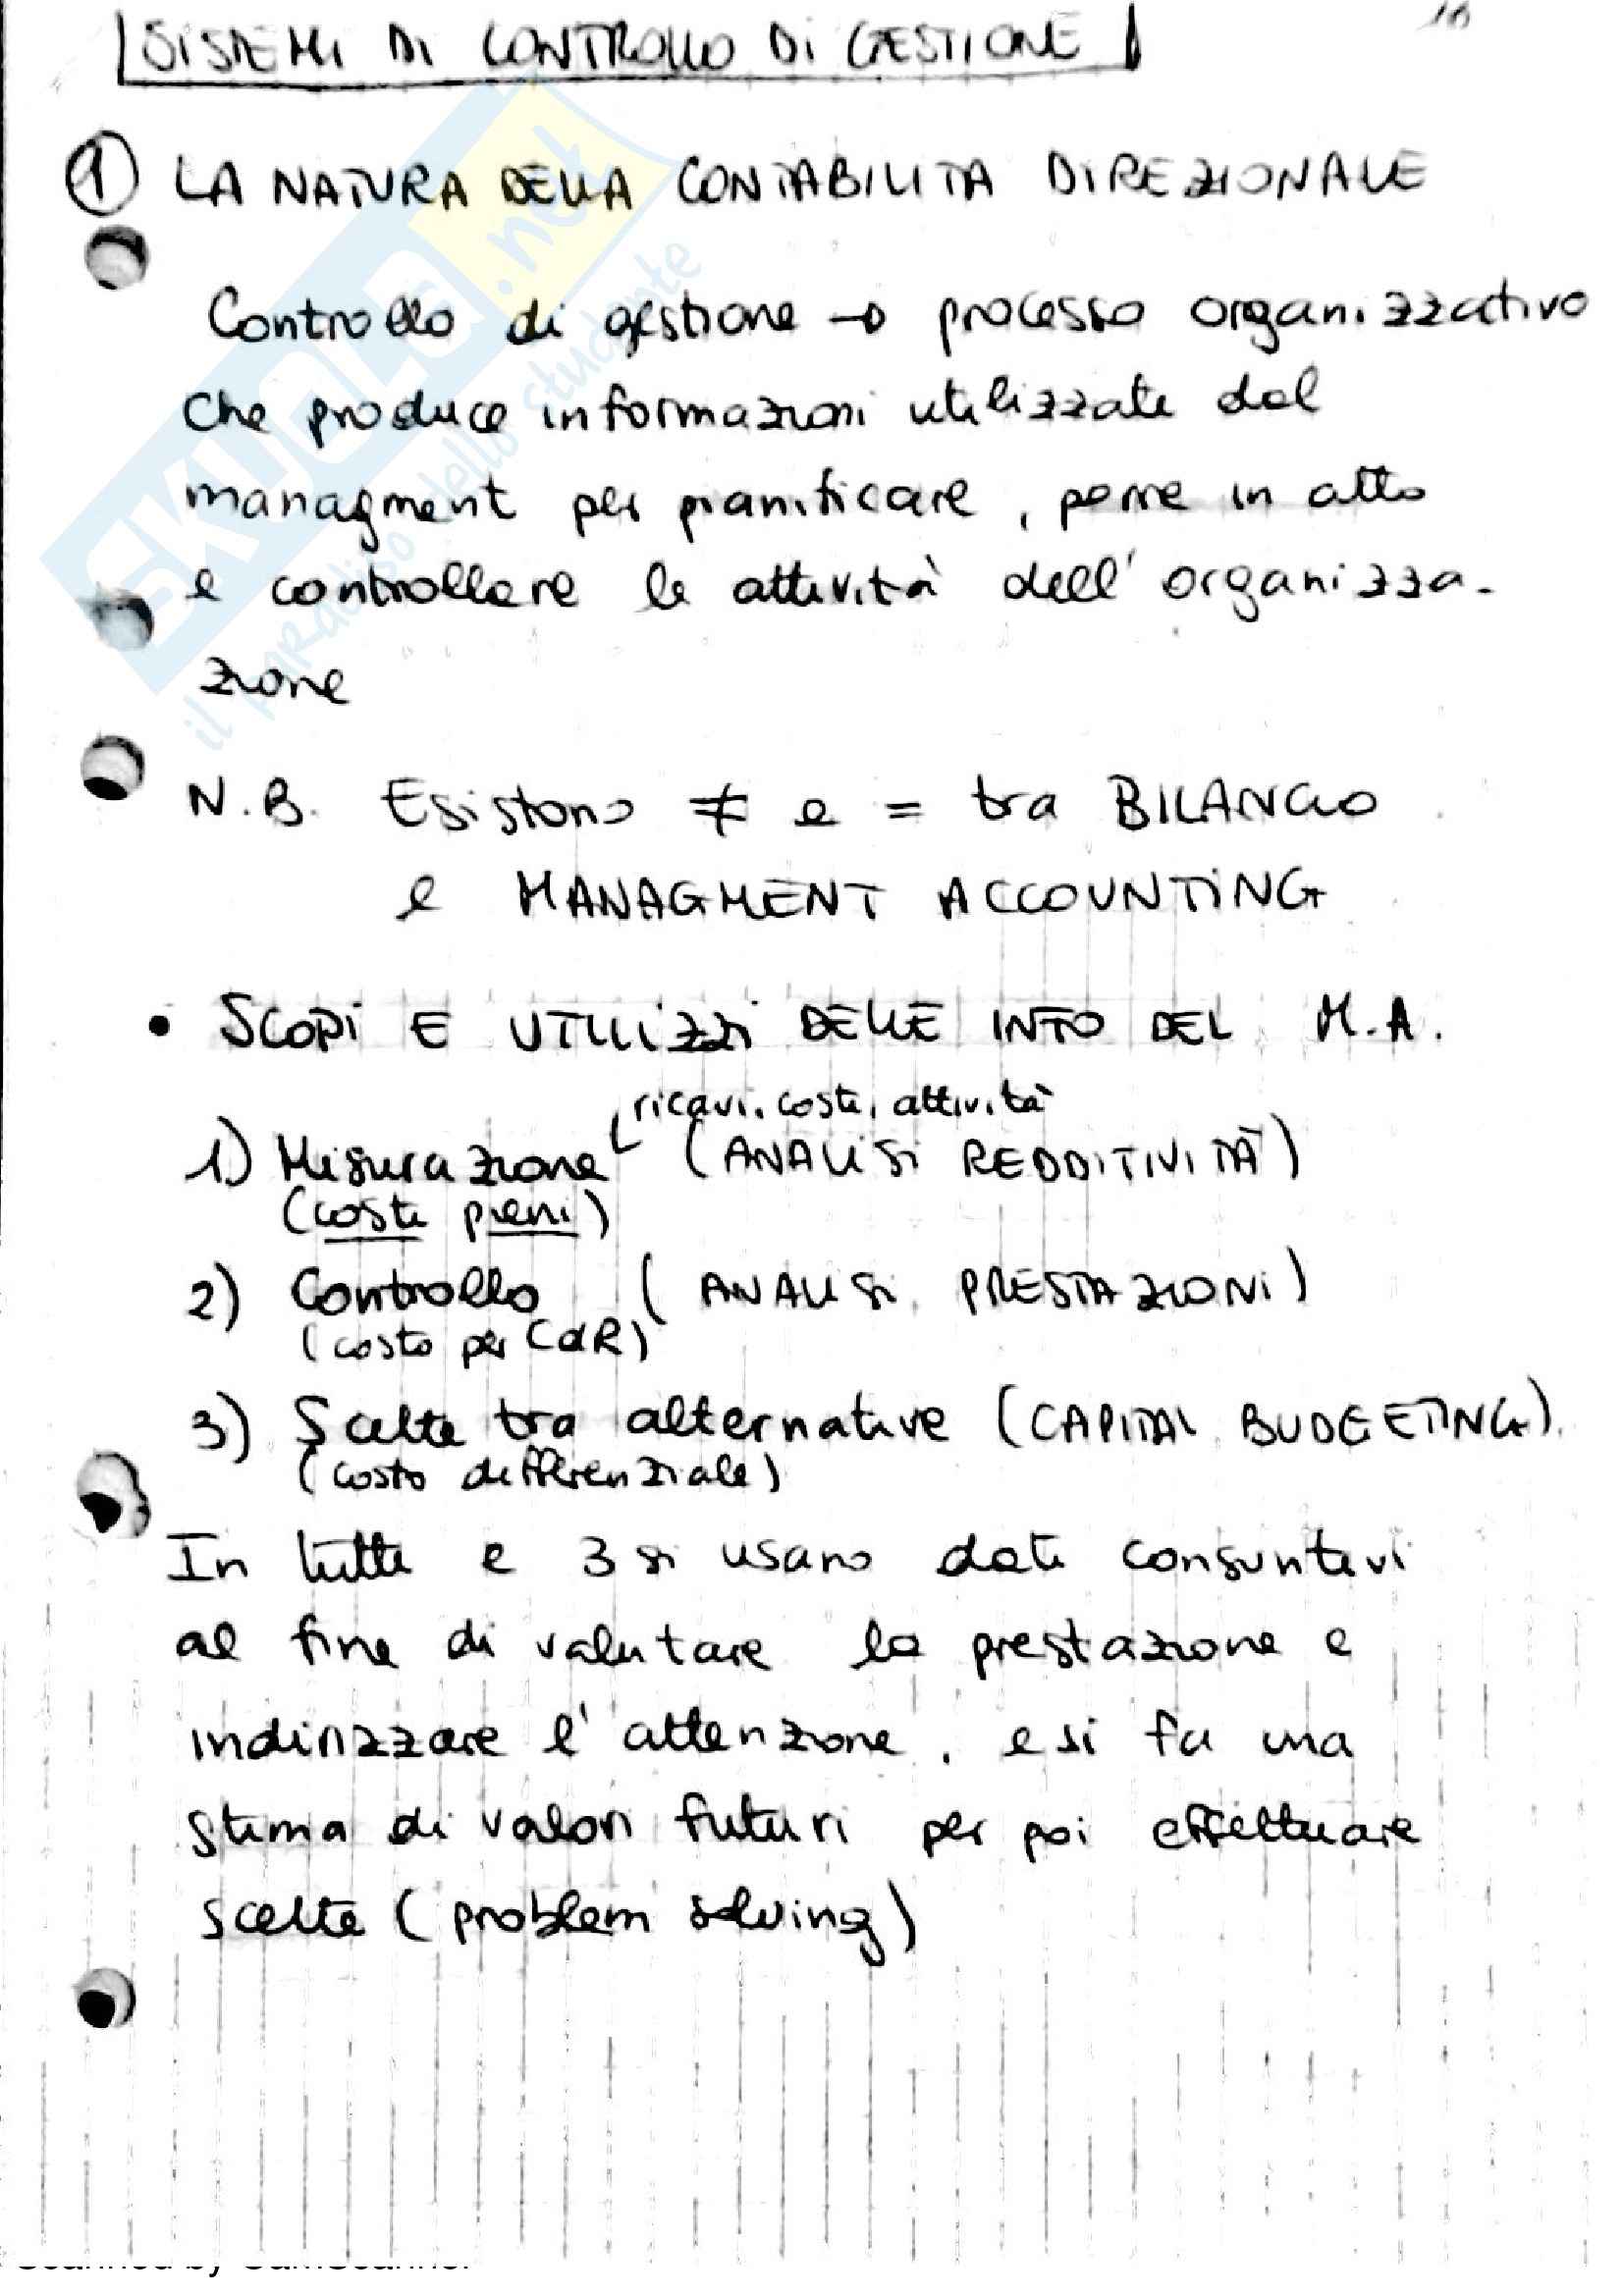 SISTEMI DI CONTROLLO DI GESTIONE
1 LA NATURA DELLA CONTABILITA DIREZIONALE
Controllo di gestione → processo organizzativo
che produce informazioni utilizzate dal
managment per pianificare, porre in atto
e controllare le attività dell'organizza-
zione
N.B. Esistono ≠ e = tra BILANCIO
e MANAGMENT ACCOUNTING
• SCOPI E UTILIZZI DELLE INFO DEL M.A.
ricavi, costi, attività
1) Misurazione (ANALISI REDDITIVITÀ)
(costi pieni)
2) Controllo (ANALISI PRESTAZIONI)
(costo per CdR)
3) Scelte tra alternative (CAPITAL BUDGETING).
(costo differenziale)
In tutti e 3 si usano dati consuntivi
al fine di valutare la prestazione e
indirizzare l'attenzione, e si fa una
stima di valori futuri per poi effettuare
scelte (problem solving)
SKUOLA.net
il paradiso dello studente
Scanned by CamScanner